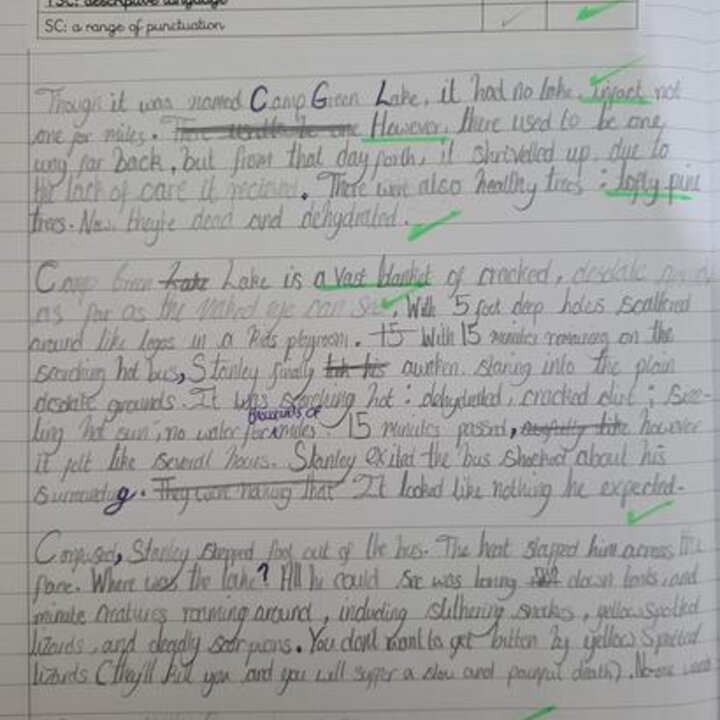 TSC: descriptive language
SC: a range of punctuation
Though it was named Camp Green Lake, it had no lake, infact not
one for miles. There used to be one However, there used to be one
way far back, but from that day forth, it shrivelled up, due to
the lack of care it recieved. There were also healthy trees: lofty pine
trees. Now they're dead and dehydrated.
Camp Green Lake Lake is a vast blanket of cracked, desolate
as far as the naked eye can see. With 5 foot deep holes scattered
around like legos in a kids playroom. 15 With 15 minutes remaining on the
scorching hot bus, Stanley finally awoken. staring into the plain
desolate grounds. It was scorching hot: dehydrated, cracked dirt;
hot sun; no water for thousands of miles. 15 minutes passed, however
it felt like several hours. Stanley exited the bus shocked about his
surrounding. They were having that It looked like nothing he expected.
Confused, Stanley stepped foot out of the bus. The heat slapped him across the
face. Where was the lake? All he could see was boring tents, and
minute creatures roaming around, including slithering snakes, yellow spotted
lizards, and deadly scorpions. You dont want to get bitten by yellow spotted
lizards (they'll kill you and you will suffer a slow and painful death). No-one